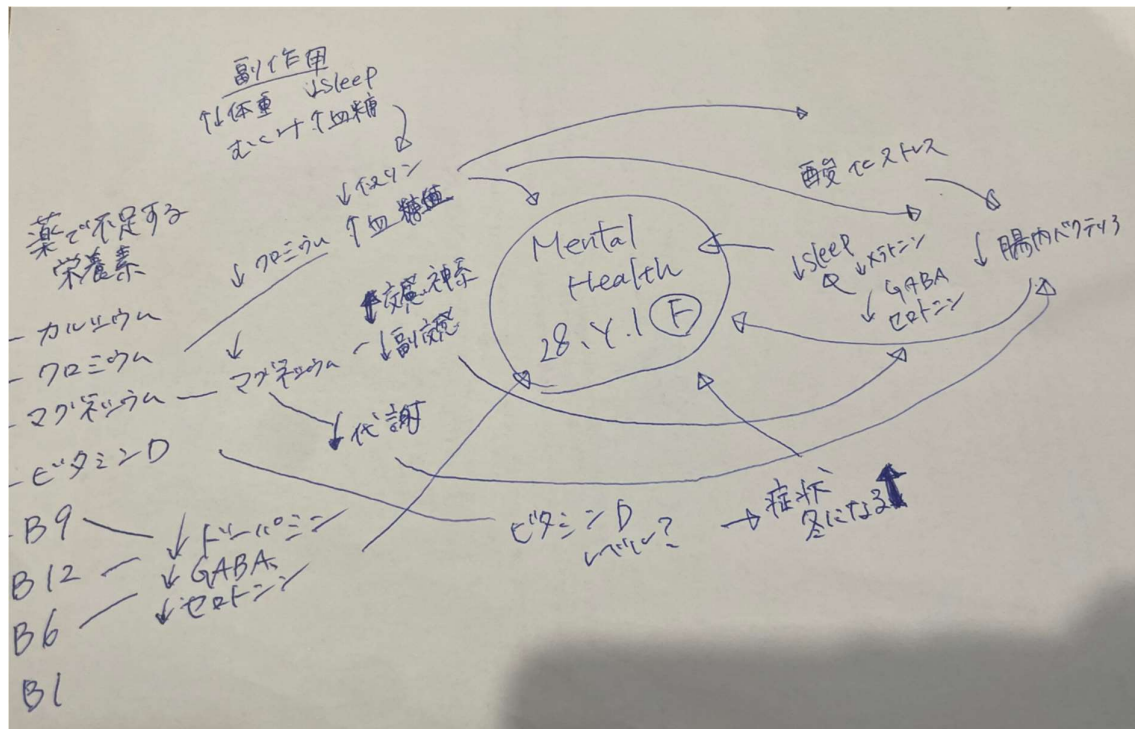 副作用
↑↓体重 ↓sleep
むくみ ↑血糖
薬で不足する
栄養素
- カルシウム
- クロミウム
- マグネシウム
- ビタミンD
- B9
B12
B6
B1
↓クロミウム
↓インスリン
↑血糖値
↓マグネシウム
↑交感神系
↓副交感
↓代謝
↓ドーパミン
↓GABA
↓セロトニン
Mental
Health
28.Y.I F
酸化ストレス
↓sleep
↓メラトニン
↓GABA
セロトニン
↓腸内バクテリア
ビタミンD
レベル?
→症状
冬になる↑